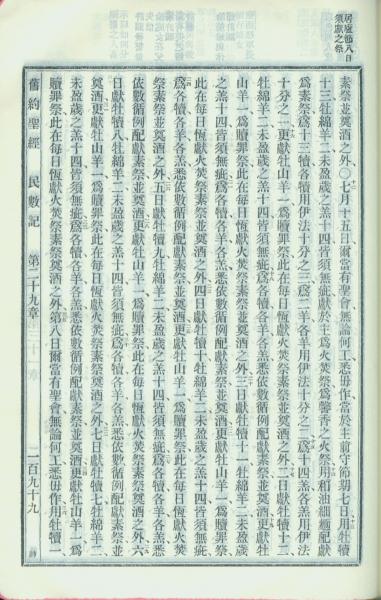 居廬節八日
須獻之祭
素祭並奠酒之外〇七月十五日爾當有聖會無論何工悉毋作當於主前守節期七日用牡犢
十三牡綿羊二未盈歲之羔十四皆須無疵獻於主爲火焚祭爲馨香之火祭用和油細麵配獻
爲素祭爲十三犢各犢用伊法十分之三爲二羊各羊用伊法十分之二爲十四羔各羔用伊法
十分之一更獻牡山羊一爲贖罪祭此在每日恆獻火焚祭素祭並奠酒之外二日獻牡犢十二
牡綿羊二未盈歲之羔十四皆須無疵爲各犢各羊各羔悉依數循例配獻素祭並奠酒更獻牡
山羊一爲贖罪祭此在每日恆獻火焚祭素祭並奠酒之外三日獻牡犢十一牡綿羊二未盈歲
之羔十四皆須無疵爲各犢各羊各羔悉依數循例配獻素祭並奠酒更獻牡山羊一爲贖罪祭
此在每日恆獻火焚祭素祭並奠酒之外四日獻牡犢十牡綿羊二未盈歲之羔十四皆須無疵
爲各犢各羊各羔悉依數循例配獻素祭並奠酒更獻牡山羊一爲贖罪祭此在每日恆獻火焚
祭素祭並奠酒之外五日獻牡犢九牡綿羊二未盈歲之羔十四皆須無疵爲各犢各羊各羔悉
依數循例配獻素祭並奠酒更獻牡山羊一爲贖罪祭此在每日恆獻火焚祭素祭並奠酒之外六
日獻牡犢八牡綿羊二未盈歲之羔十四皆須無疵爲各犢各羊各羔悉依數循例配獻素祭並
奠酒更獻牡山羊一爲贖罪祭此在每日恆獻火焚祭素祭並奠酒之外七日獻牡犢七牡綿羊二
未盈歲之羔十四皆須無疵爲各犢各羊各羔悉依數循例配獻素祭並奠酒更獻牡山羊一爲
贖罪祭此在每日恆獻火焚祭素祭並奠酒之外第八日爾當有聖會無論何工悉毋作用牡犢一
舊約聖經 民數記 第二十九章 一百九十九